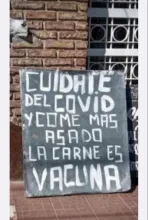 CUIDATE
DEL COVID
Y COME MAS
ASADO
LA CARNE ES
VACUNA